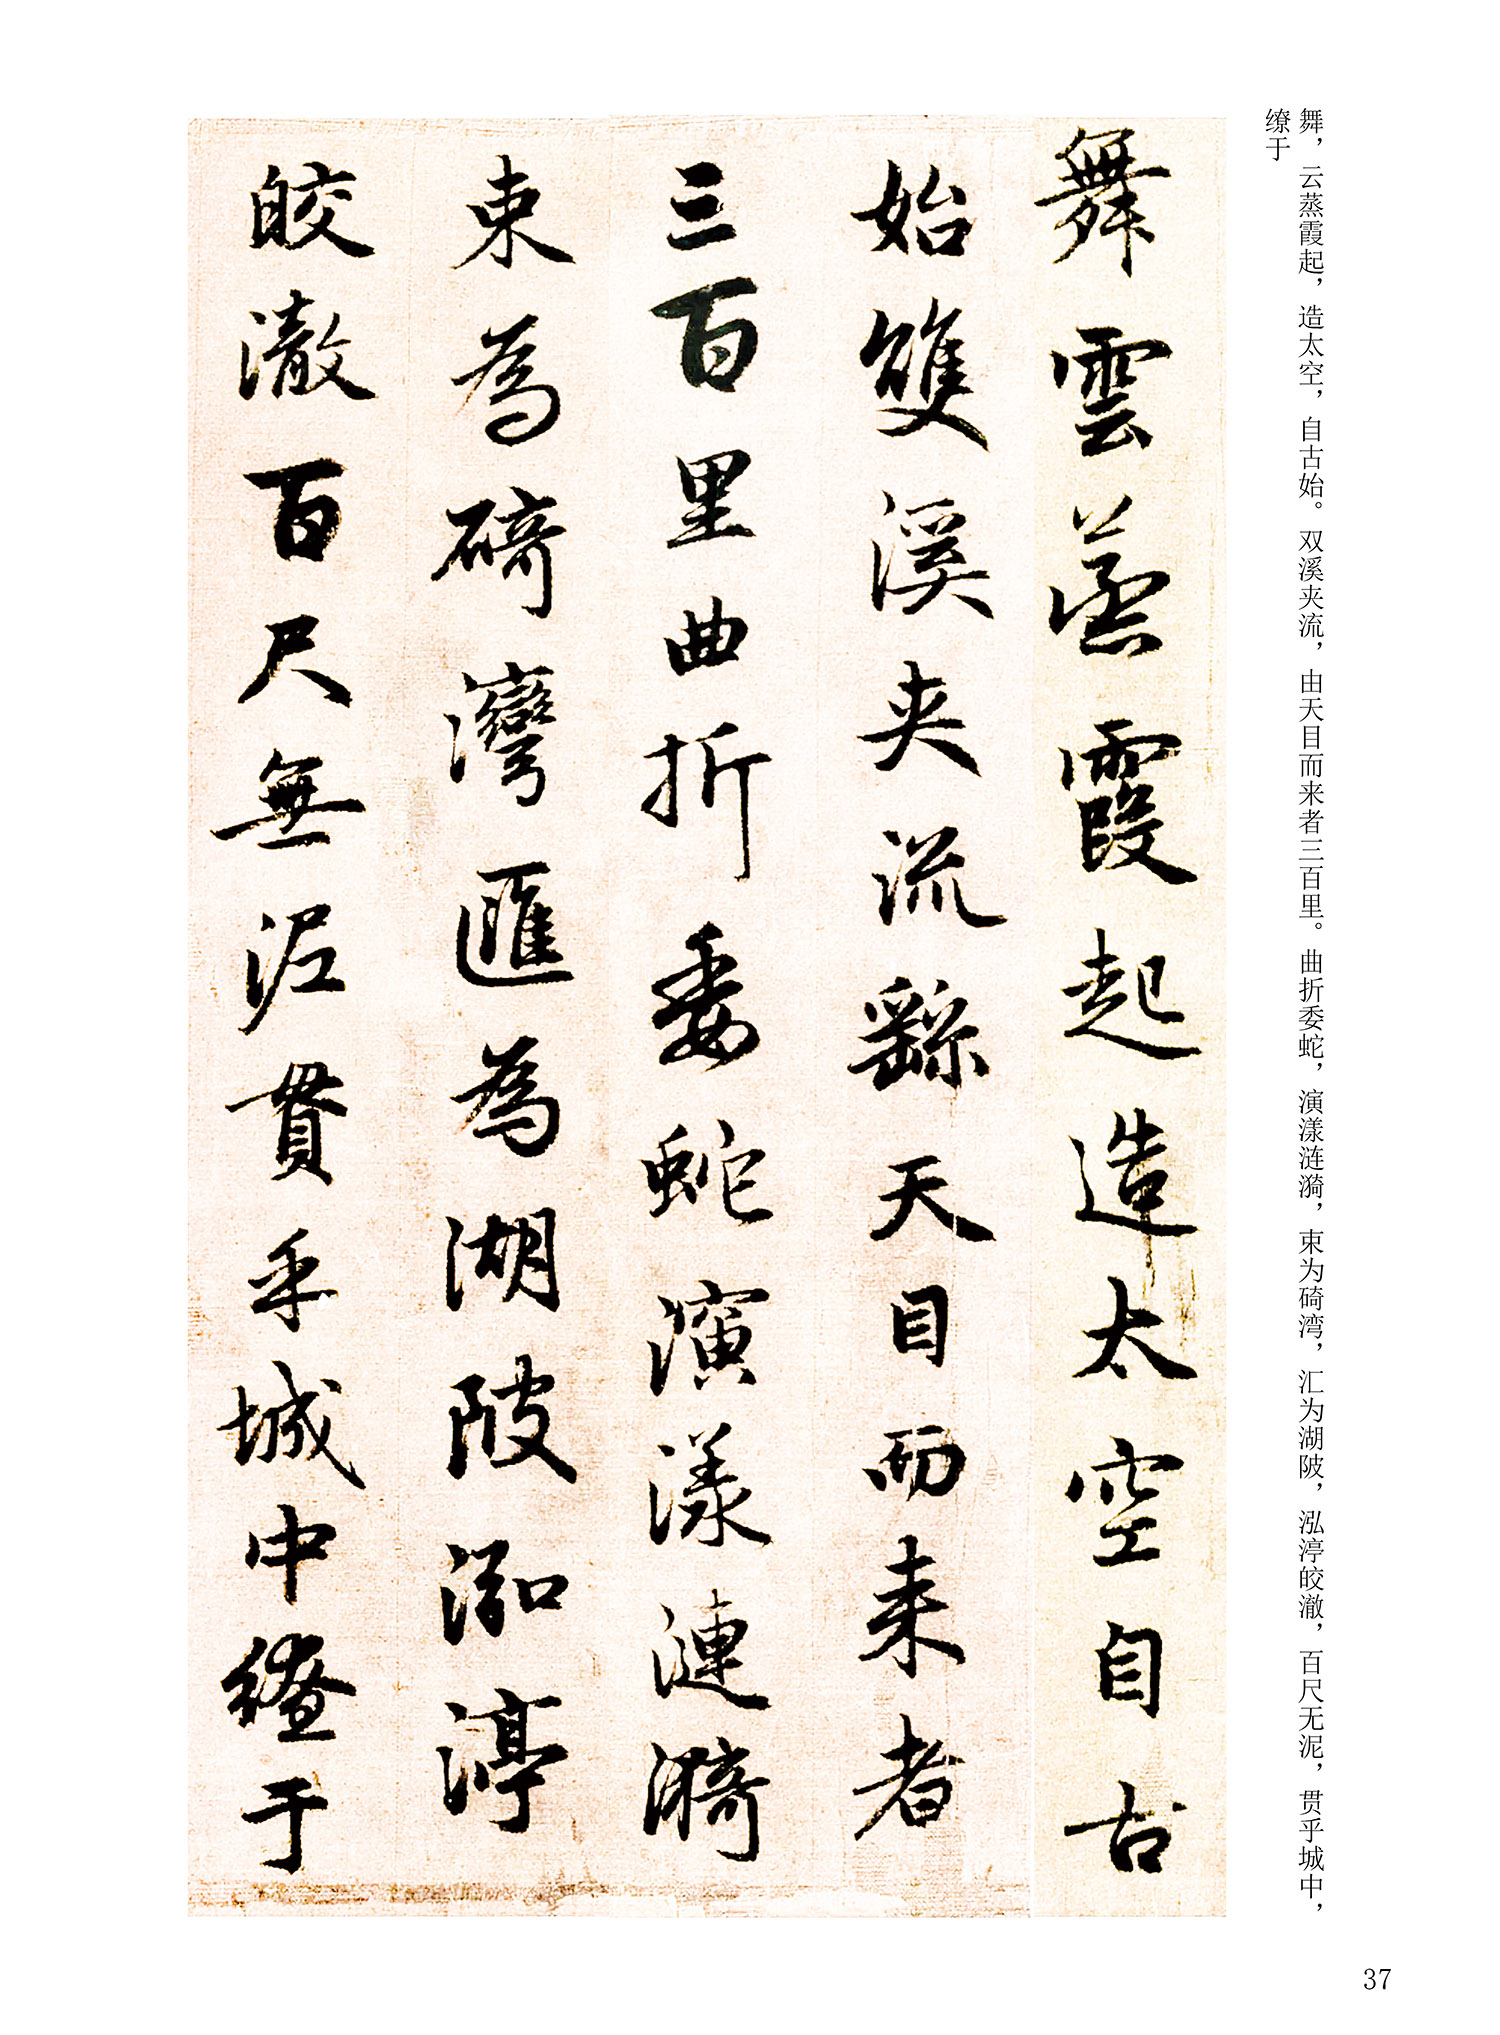 舞，云蒸霞起，造太空，自古始。双溪夹流，由天目而来者三百里。曲折委蛇，演漾涟漪，束为碕湾，汇为湖陂，泓渟皎澈，百尺无泥，贯乎城中，
缭于
舞雲蒸霞起造太空自古
始雙溪夾流繇天目而来者
三百里曲折委蛇演漾漣漪
束為碕灣匯為湖陂泓渟
皎澈百尺無泥貫乎城中繚于
37